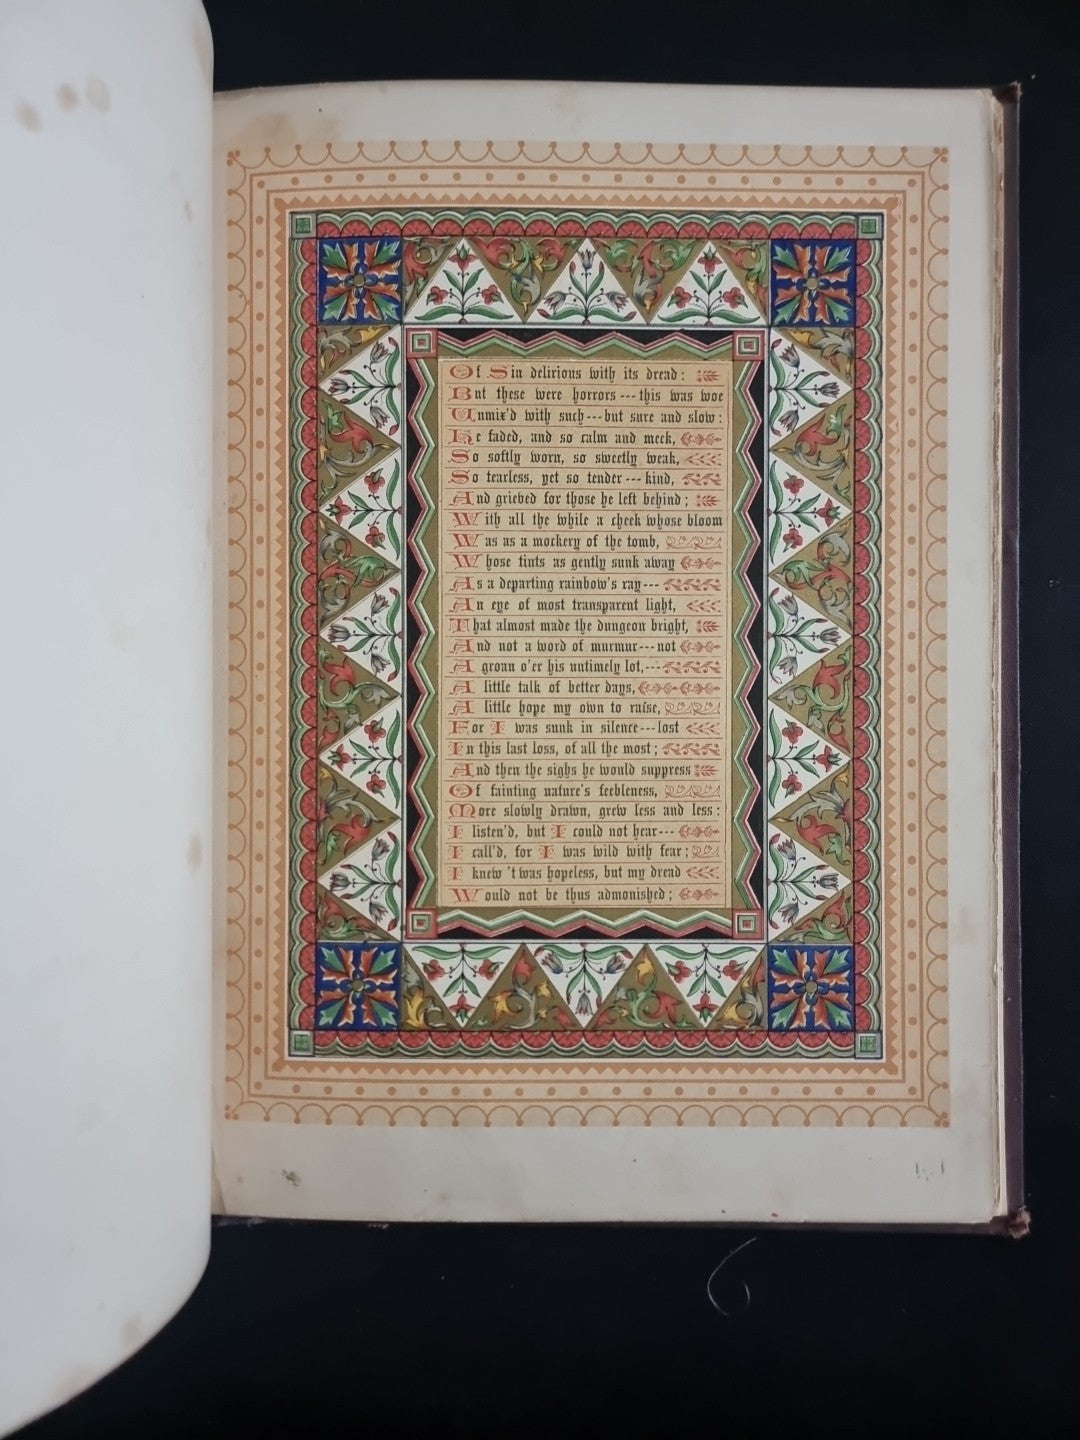 Of Sin delirious with its dread:
But these were horrors---this was woe
Unmix'd with such---but sure and slow:
He faded, and so calm and meek,
So softly worn, so sweetly weak,
So tearless, yet so tender---kind,
And grieved for those he left behind;
With all the while a cheek whose bloom
Was as a mockery of the tomb,
Whose tints as gently sunk away
As a departing rainbow's ray---
An eye of most transparent light,
That almost made the dungeon bright,
And not a word of murmur---not
A groan o'er his untimely lot,---
A little talk of better days,
A little hope my own to raise,
For I was sunk in silence---lost
In this last loss, of all the most;
And then the sighs he would suppress
Of fainting nature's feebleness,
More slowly drawn, grew less and less:
I listen'd, but I could not hear---
I call'd, for I was wild with fear;
I knew 't was hopeless, but my dread
Would not be thus admonished;